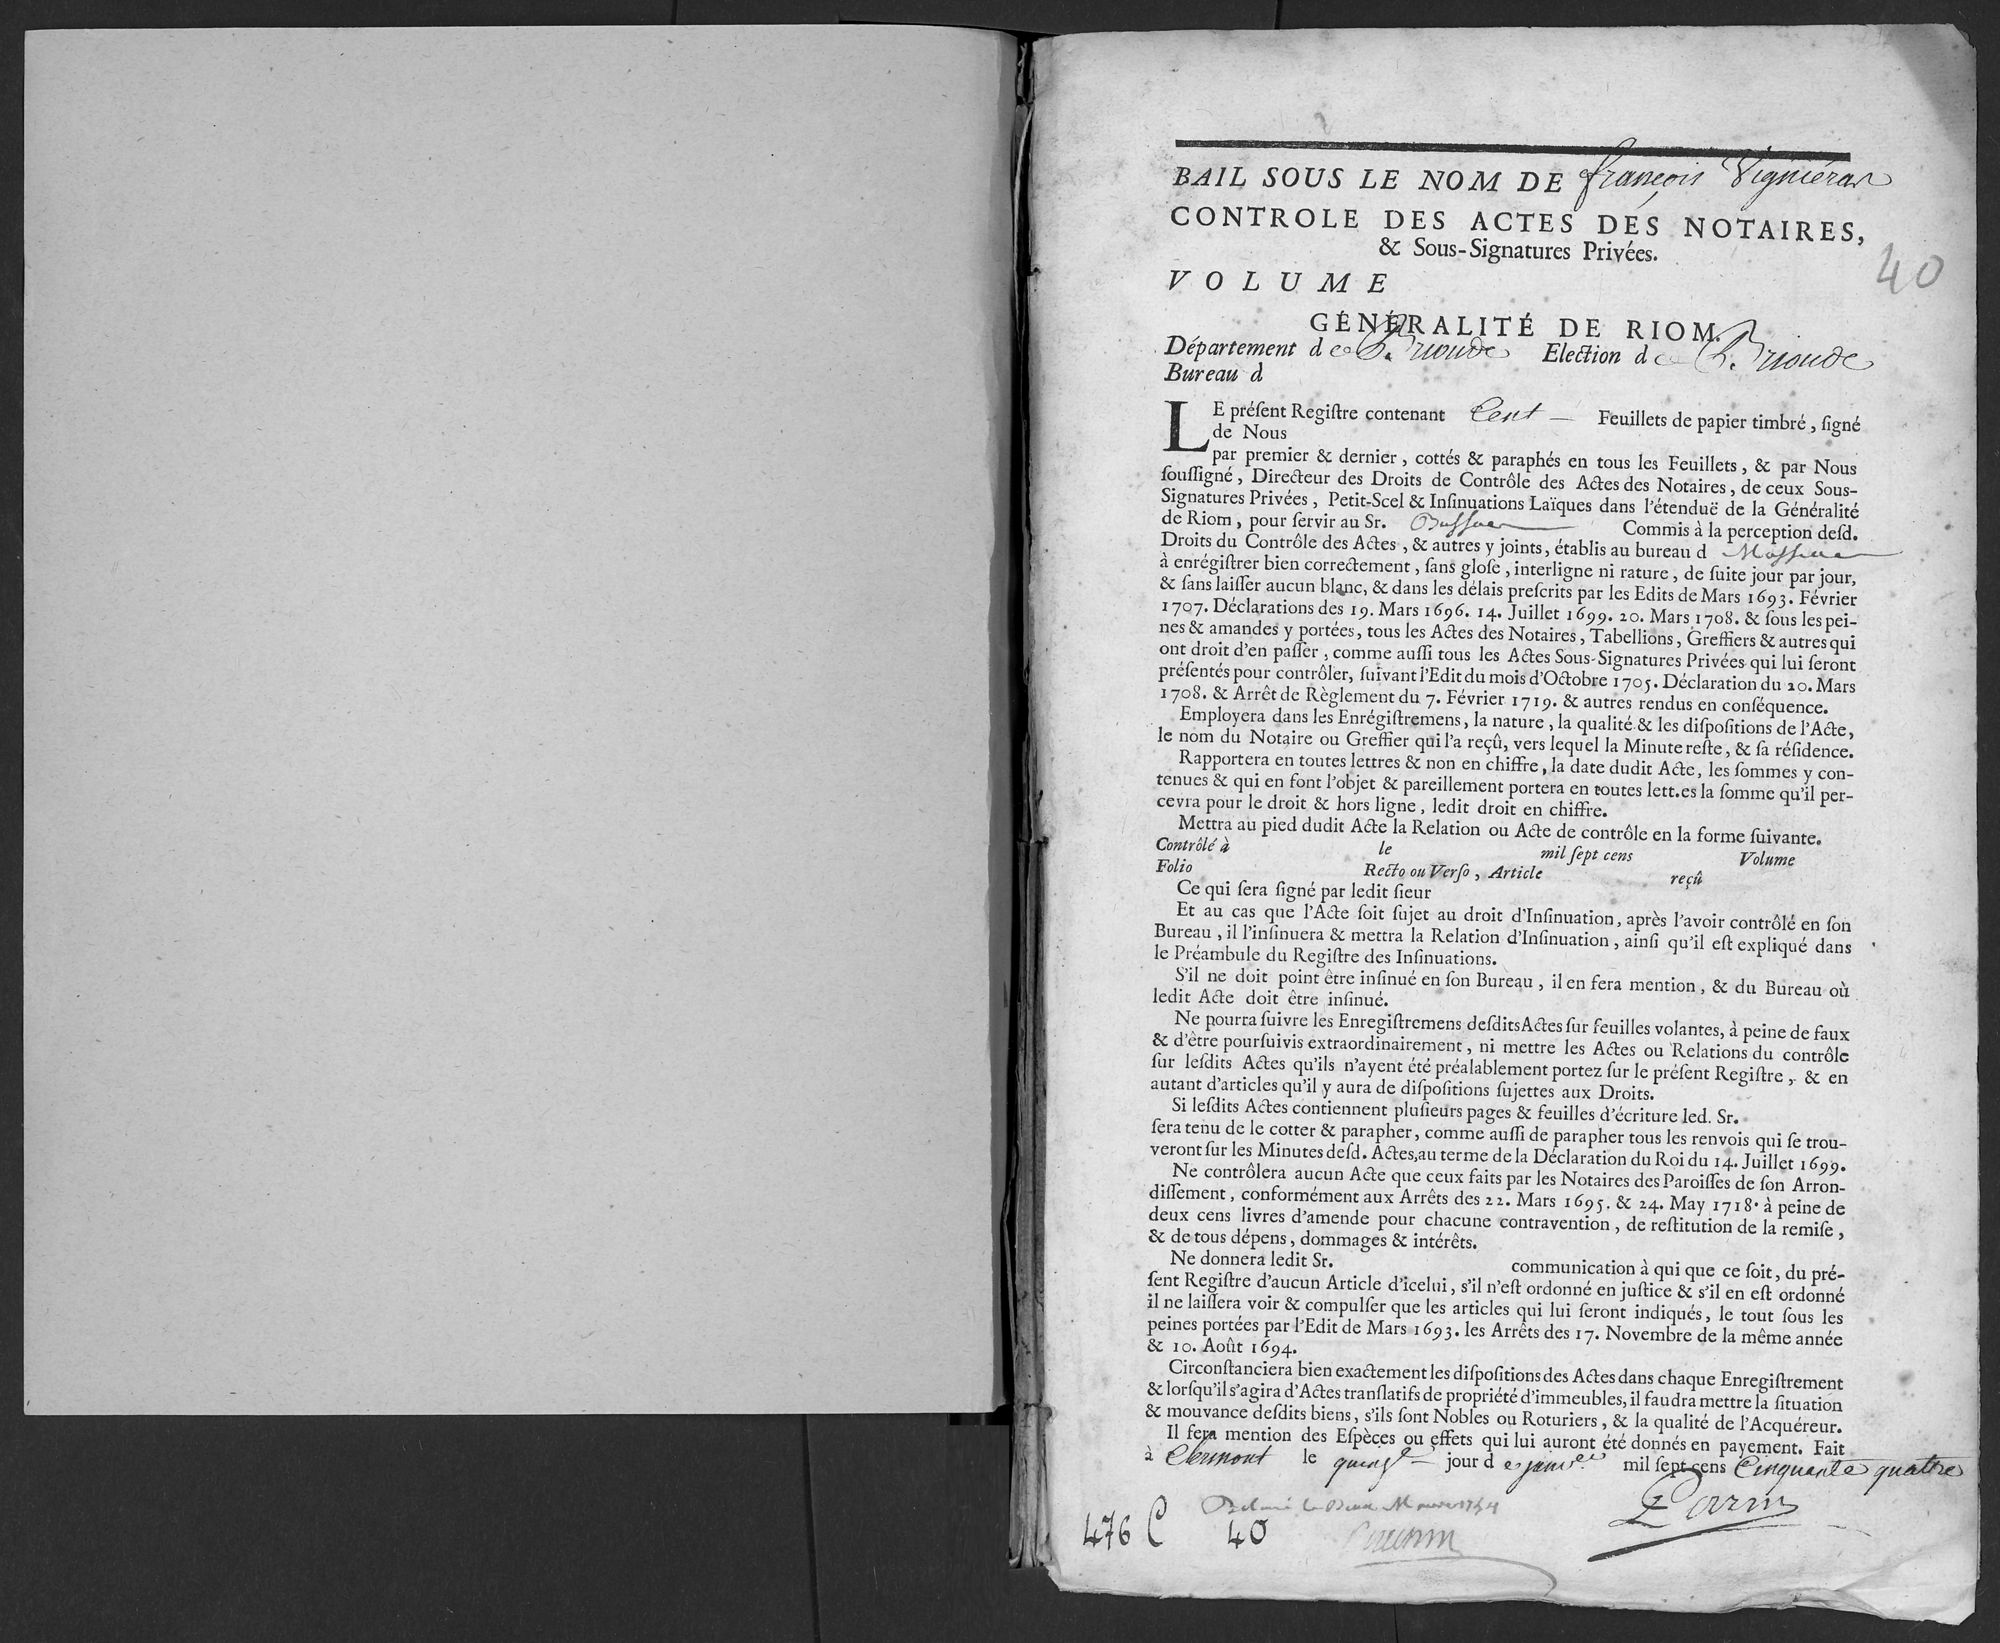 BAIL SOUS LE NOM DE françois Vigniéras
CONTROLE DES ACTES DES NOTAIRES,
& Sous-Signatures Privées.
40
VOLUME
GÉNÉRALITÉ DE RIOM.
Département de Brioude Election de Brioude
Bureau d
LE préſent Regiſtre contenant Cent Feuillets de papier timbré, ſigné
de Nous
par premier & dernier, cottés & paraphés en tous les Feuillets, & par Nous
ſouſſigné, Directeur des Droits de Contrôle des Actes des Notaires, de ceux Sous-
Signatures Privées, Petit-Scel & Inſinuations Laïques dans l'étenduë de la Généralité
de Riom, pour ſervir au Sr. Commis à la perception deſd.
Droits du Contrôle des Actes, & autres y joints, établis au bureau d
à enrégiſtrer bien correctement, ſans gloſe, interligne ni rature, de ſuite jour par jour,
& ſans laiſſer aucun blanc, & dans les délais preſcrits par les Edits de Mars 1693. Février
1707. Déclarations des 19. Mars 1696. 14. Juillet 1699. 20. Mars 1708. & ſous les pei-
nes & amandes y portées, tous les Actes des Notaires, Tabellions, Greffiers & autres qui
ont droit d'en paſſer, comme auſſi tous les Actes Sous-Signatures Privées qui lui ſeront
préſentés pour contrôler, ſuivant l'Edit du mois d'Octobre 1705. Déclaration du 20. Mars
1708. & Arrêt de Règlement du 7. Février 1719. & autres rendus en conſéquence.
Employera dans les Enrégiſtremens, la nature, la qualité & les diſpoſitions de l'Acte,
le nom du Notaire ou Greffier qui l'a reçû, vers lequel la Minute reſte, & ſa réſidence.
Rapportera en toutes lettres & non en chiffre, la date dudit Acte, les ſommes y con-
tenues & qui en font l'objet & pareillement portera en toutes lett.es la ſomme qu'il per-
cevra pour le droit & hors ligne, ledit droit en chiffre.
Mettra au pied dudit Acte la Relation ou Acte de contrôle en la forme ſuivante.
Contrôlé à le mil ſept cens Volume
Folio Recto ou Verſo, Article reçû
Ce qui ſera ſigné par ledit ſieur
Et au cas que l'Acte ſoit ſujet au droit d'Inſinuation, après l'avoir contrôlé en ſon
Bureau, il l'inſinuera & mettra la Relation d'Inſinuation, ainſi qu'il eſt expliqué dans
le Préambule du Regiſtre des Inſinuations.
S'il ne doit point être inſinué en ſon Bureau, il en fera mention, & du Bureau où
ledit Acte doit être inſinué.
Ne pourra ſuivre les Enregiſtremens deſdits Actes ſur feuilles volantes, à peine de faux
& d'être pourſuivis extraordinairement, ni mettre les Actes ou Relations du contrôle
ſur leſdits Actes qu'ils n'ayent été préalablement portez ſur le préſent Regiſtre, & en
autant d'articles qu'il y aura de diſpoſitions ſujettes aux Droits.
Si leſdits Actes contiennent pluſieurs pages & feuilles d'écriture led. Sr.
ſera tenu de le cotter & parapher, comme auſſi de parapher tous les renvois qui ſe trou-
veront ſur les Minutes deſd. Actes, au terme de la Déclaration du Roi du 14. Juillet 1699.
Ne contrôlera aucun Acte que ceux faits par les Notaires des Paroiſſes de ſon Arron-
diſſement, conformément aux Arrêts des 22. Mars 1695. & 24. May 1718. à peine de
deux cens livres d'amende pour chacune contravention, de reſtitution de la remiſe,
& de tous dépens, dommages & intérêts.
Ne donnera ledit Sr. communication à qui que ce ſoit, du pré-
ſent Regiſtre d'aucun Article d'icelui, s'il n'eſt ordonné en juſtice & s'il en eſt ordonné
il ne laiſſera voir & compulſer que les articles qui lui ſeront indiqués, le tout ſous les
peines portées par l'Edit de Mars 1693. les Arrêts des 17. Novembre de la même année
& 10. Août 1694.
Circonſtanciera bien exactement les diſpoſitions des Actes dans chaque Enregiſtrement
& lorſqu'il s'agira d'Actes tranſlatifs de propriété d'immeubles, il faudra mettre la ſituation
& mouvance deſdits biens, s'ils ſont Nobles ou Roturiers, & la qualité de l'Acquéreur.
Il fera mention des Eſpèces ou effets qui lui auront été donnés en payement. Fait
à Clermont le jour de janvier mil ſept cens Cinquante quatre
Perrin
476 C 40